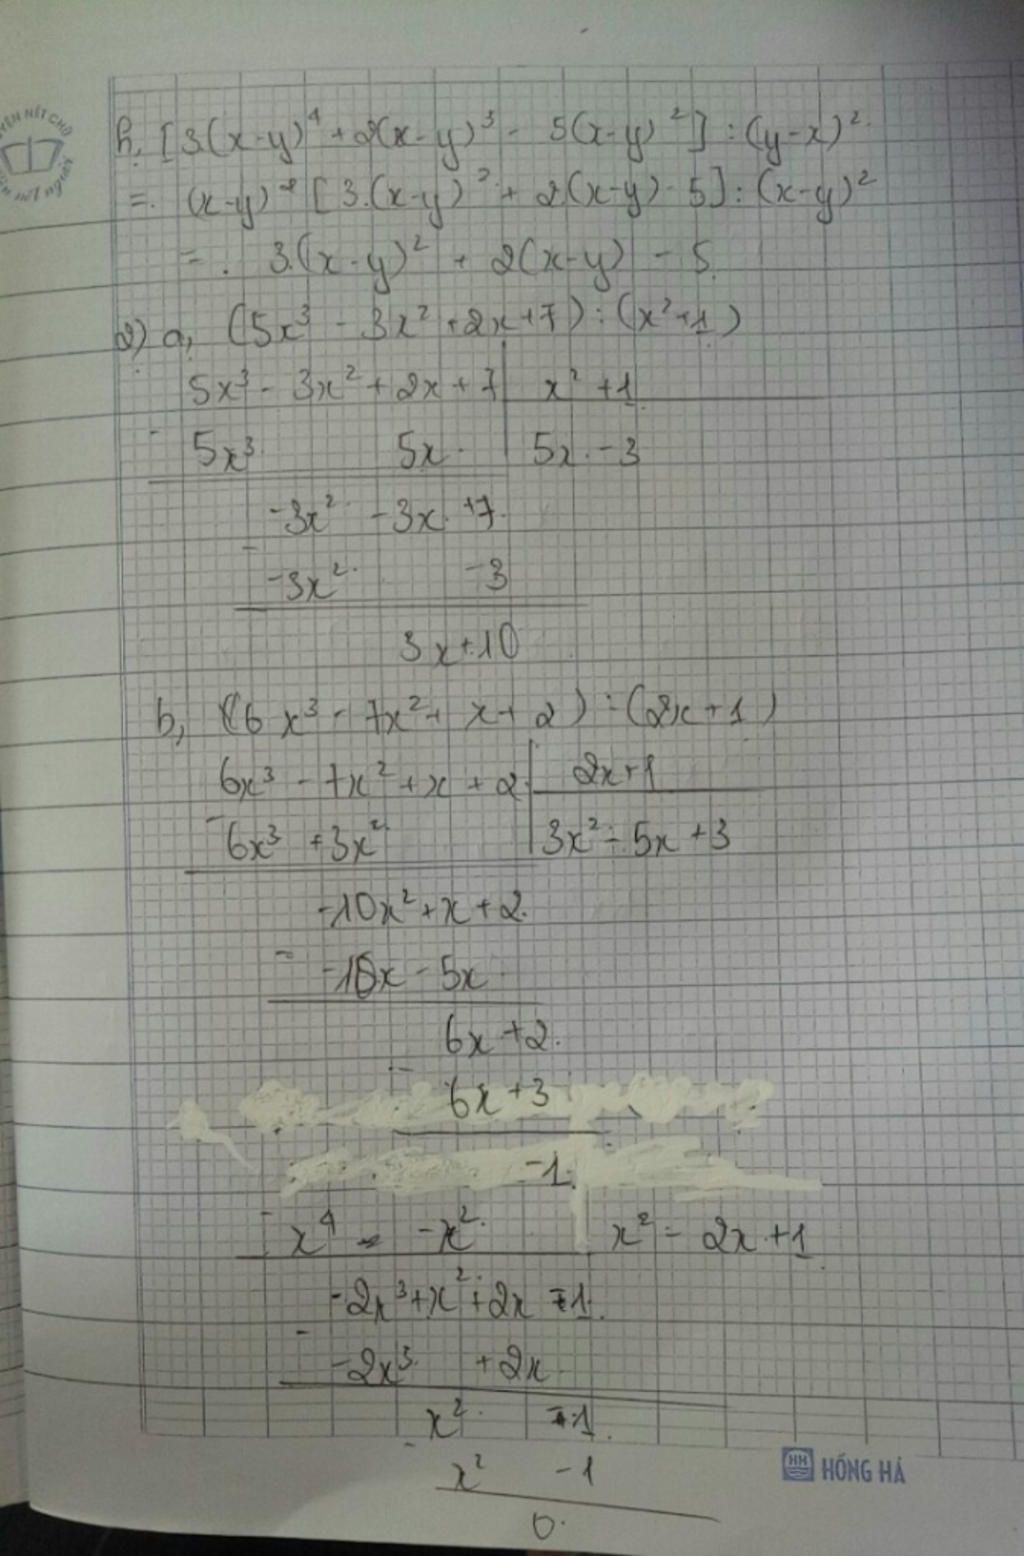 h. [3(x-y)⁴ + 2(x-y)³ - 5(x-y)²] : (y-x)²
= (x-y)² [3.(x-y)² + 2(x-y) - 5] : (x-y)²
= 3.(x-y)² + 2(x-y) - 5
2) a, (5x³ - 3x² + 2x + 7) : (x² + 1)
5x³ - 3x² + 2x + 7 | x² + 1
- 5x³ 5x | 5x - 3
-3x² - 3x + 7
- -3x² -3
3x + 10
b, (6x³ - 7x² + x + 2) : (2x + 1)
6x³ - 7x² + x + 2 | 2x + 1
- 6x³ + 3x² | 3x² - 5x + 3
-10x² + x + 2
- -10x - 5x
6x + 2
- 6x + 3
-1
- x⁴ - x² x² - 2x + 1
-2x³ + x² + 2x - 1
- -2x³ + 2x
x² - 1
- x² - 1
0
HH HỒNG HÀ